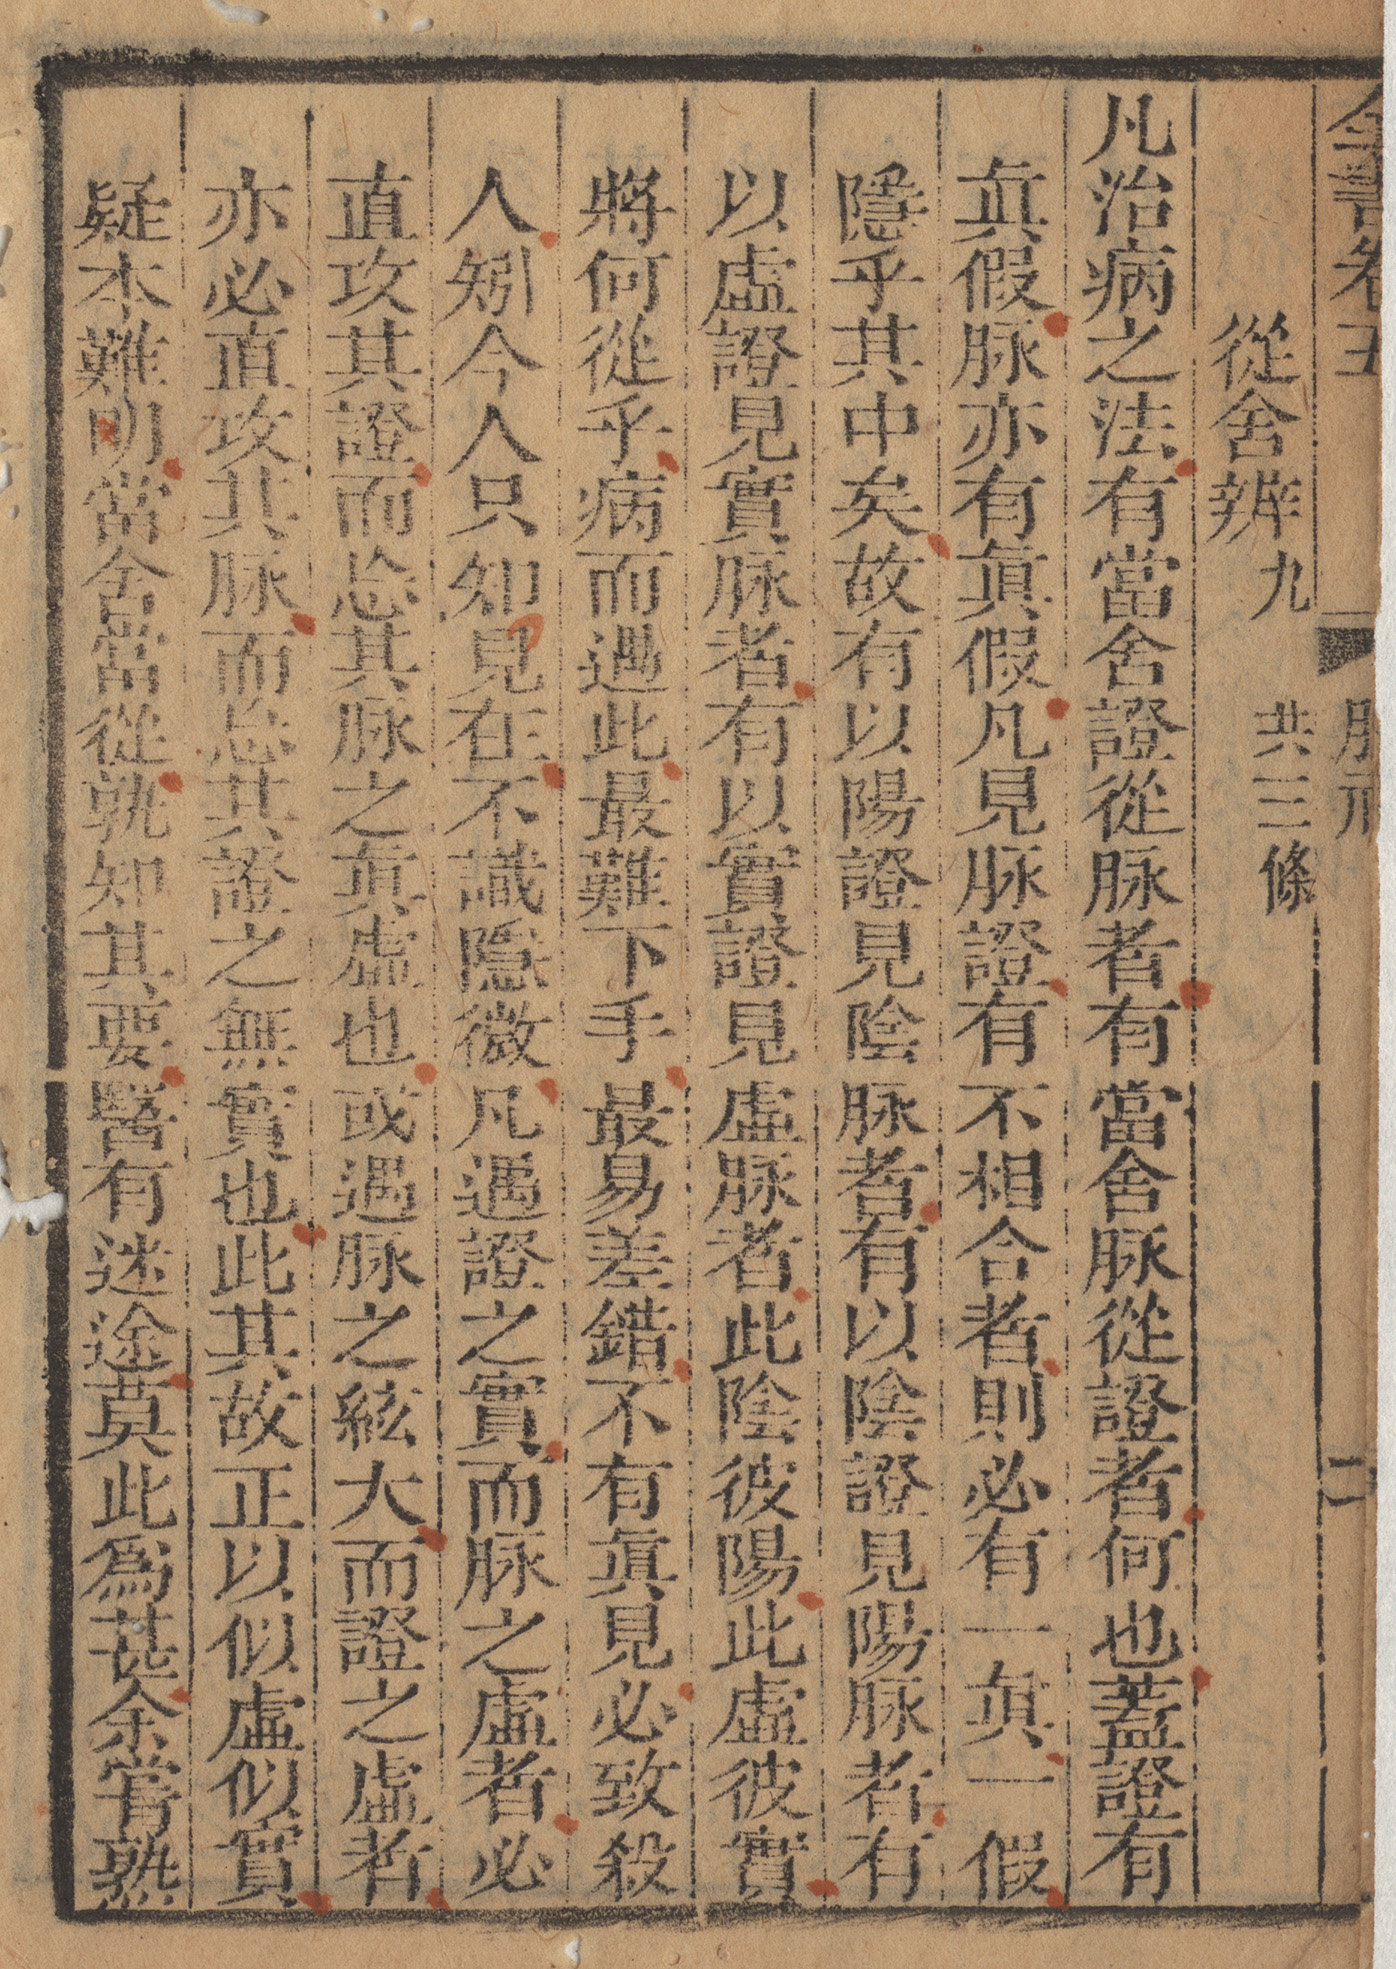 全書卷五
脉
二
從舍辨九 共三條
凡治病之法有當舍證從脉者有當舍脉從證者何也蓋證有
眞假脉亦有眞假凡見脉證有不相合者則必有一眞一假
隱乎其中矣故有以陽證見陰脉者有以陰證見陽脉者有
以虛證見實脉者有以實證見虛脉者此陰彼陽此虛彼實
將何從乎病而遇此最難下手最易差錯不有眞見必致殺
人矧今人只知見在不識隱微凡遇證之實而脉之虛者必
直攻其證而忘其脉之眞虛也或遇脉之絃大而證之虛者
亦必直攻其脉而忘其證之無實也此其故正以似虛似實
疑本難明當舍當從孰知其要醫有迷途莫此爲甚余嘗熟